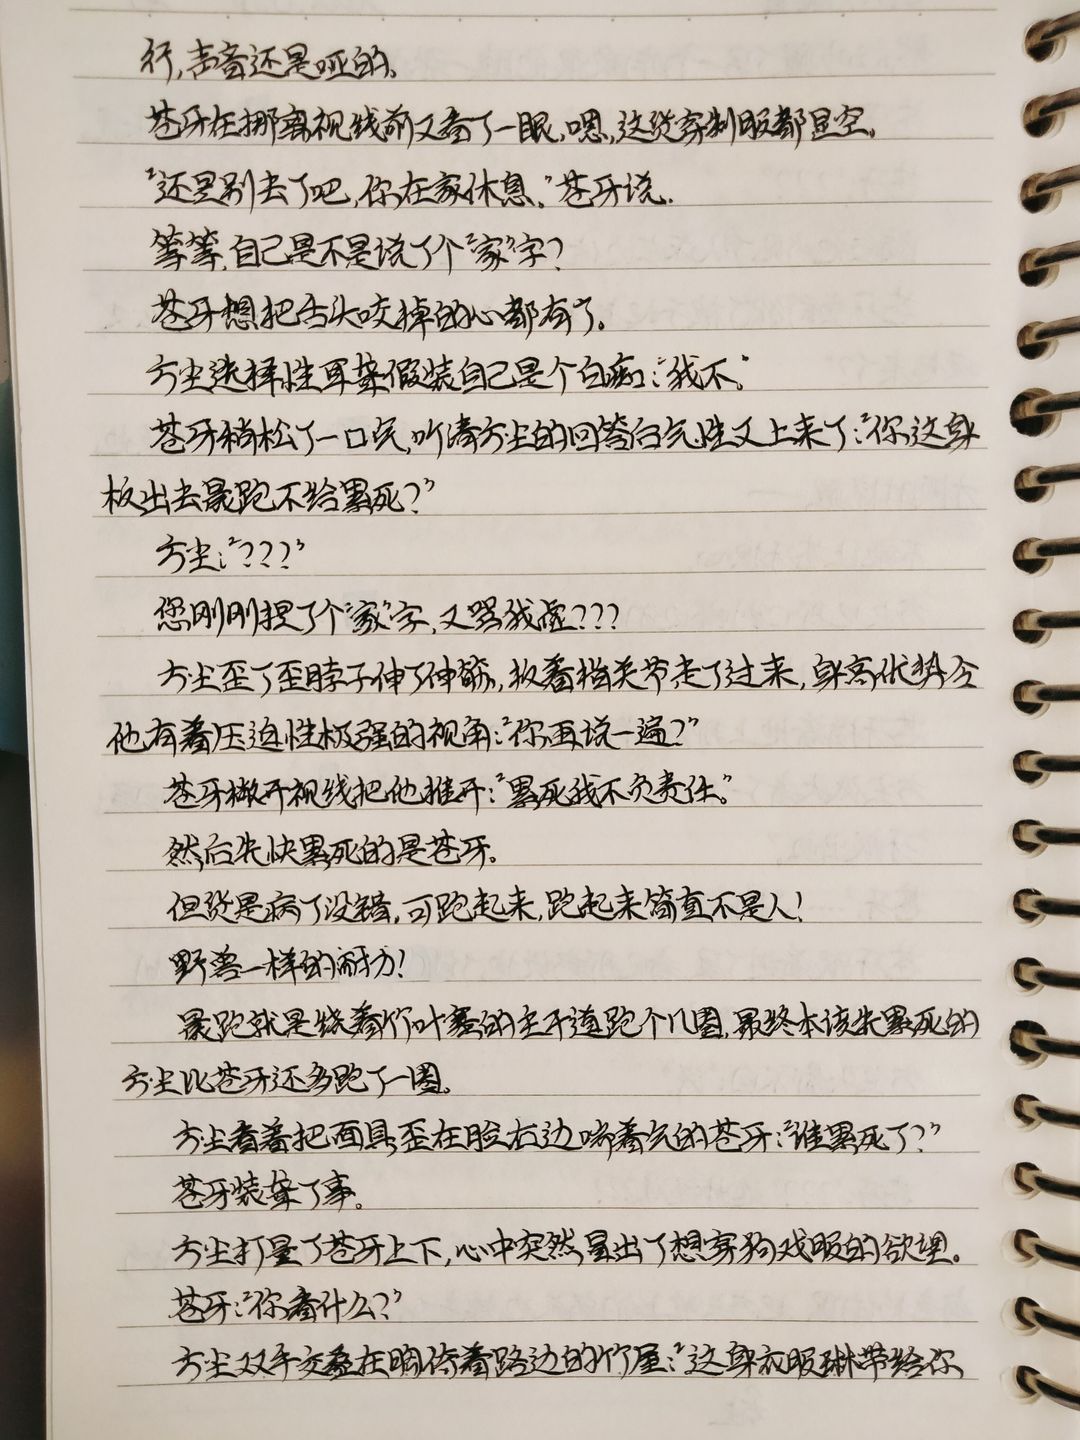 行，声音还是哑的。
苍牙在挪离视线前又看了一眼，嗯，这货穿制服都显空。
“还是别去了吧，你在家休息。”苍牙说。
等等，自己是不是说了个“家”字？
苍牙想把舌头咬掉的心都有了。
方尘选择性耳聋假装自己是个白痴：“我不。”
苍牙稍松了一口气，听清方尘的回答后气性又上来了：“你这身
板出去晨跑不给累死？”
方尘：“？？？”
您刚刚提了个“家”字，又骂我虚？？？
方尘歪了歪脖子伸了伸筋，扳着指关节走了过来，身高优势令
他有着压迫性极强的视角：“你再说一遍？”
苍牙撇开视线把他推开：“累死我不负责任。”
然后先快累死的是苍牙。
但货是病了没错，可跑起来，跑起来简直不是人！
野兽一样的耐力！
晨跑就是绕着竹叶寨的主干道跑个几圈，最终本该先累死的
方尘比苍牙还多跑了一圈。
方尘看着把面具歪在脸右边喘着气的苍牙：“谁累死了？”
苍牙装聋了事。
方尘打量了苍牙上下，心中突然冒出了想穿狗戏服的欲望。
苍牙：“你看什么？”
方尘双手交叠在胸倚着路边的竹屋：“这身衣服琳带给你